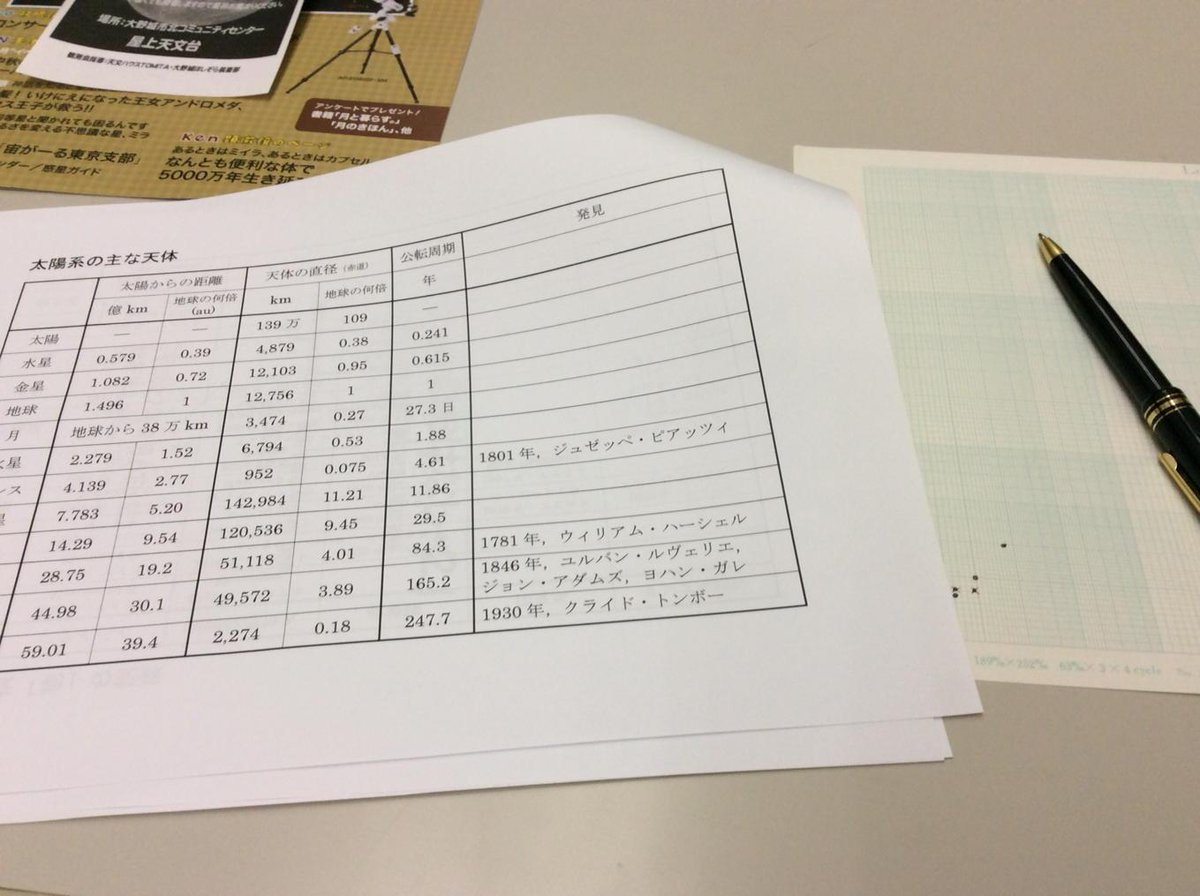 場所:大野城市北コミュニティセンター
屋上天文台
観測会指導:天文ハウスTOMITA・大野城ほしぞら倶楽部
いけにえになった王女アンドロメダ、
ス王子が救う!!
等星と聞かれても困るんです
るさを変える不思議な星、ミラ
「宙がーる東京支部」
ンダー/惑星ガイド
アンケートでプレゼント!
書籍「月と暮らす。」
「月のきほん」、他
Ken
あるときはミイラ、あるときはカプセル
なんとも便利な体で
5000万年生き延
太陽系の主な天体
太陽からの距離 天体の直径(赤道) 公転周期 発見
億 km 地球の何倍(au) km 地球の何倍 年
太陽 — — 139 万 109 —
水星 0.579 0.39 4,879 0.38 0.241
金星 1.082 0.72 12,103 0.95 0.615
地球 1.496 1 12,756 1 1
月 地球から 38 万 km 3,474 0.27 27.3 日
火星 2.279 1.52 6,794 0.53 1.88
レス 4.139 2.77 952 0.075 4.61 1801 年,ジュゼッペ・ピアッツィ
星 7.783 5.20 142,984 11.21 11.86
14.29 9.54 120,536 9.45 29.5
28.75 19.2 51,118 4.01 84.3 1781 年,ウィリアム・ハーシェル
44.98 30.1 49,572 3.89 165.2 1846 年,ユルバン・ルヴェリエ,
ジョン・アダムズ,ヨハン・ガレ
59.01 39.4 2,274 0.18 247.7 1930 年,クライド・トンボー